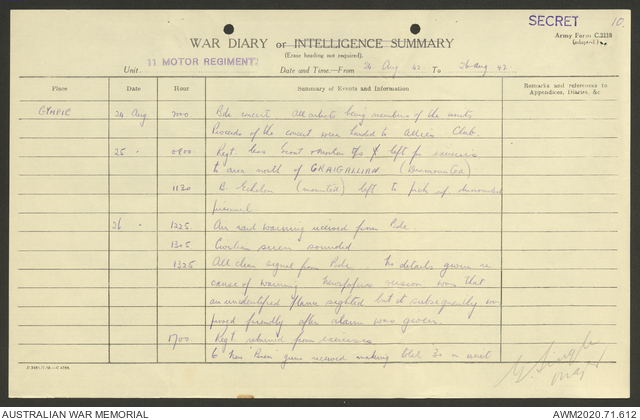 SECRET
10.
Army Form C.2118
WAR DIARY or INTELLIGENCE SUMMARY
(Erase heading not required).
Unit 11 MOTOR REGIMENT
Date and Time—From 24 Aug 42 To 26 Aug 42
Place Date Hour Summary of Events and Information Remarks and references to Appendices, Diaries, &c
GYMPIE 24 Aug 2000 Bde concert all artists being members of the units
Proceeds of the concert were handed to Allies Club.
25 - 0900 Regt. less Scout & Mortar left for exercise
to area north of CRAIGALLIAN (Dismounted)
1120 B. Echelon (mounted) left to pick up dismounted
personnel
26 - 1225 Air raid warning received from Bde
1305 Civilian siren sounded
1325 All clear signal from Bde. No details given re
cause of warning Newspapers version was that
an unidentified plane sighted but it subsequently was
proved friendly after alarm was given.
1700 Regt returned from exercises
6 new Bren guns received making total in unit
AUSTRALIAN WAR MEMORIAL
AWM2020.71.612